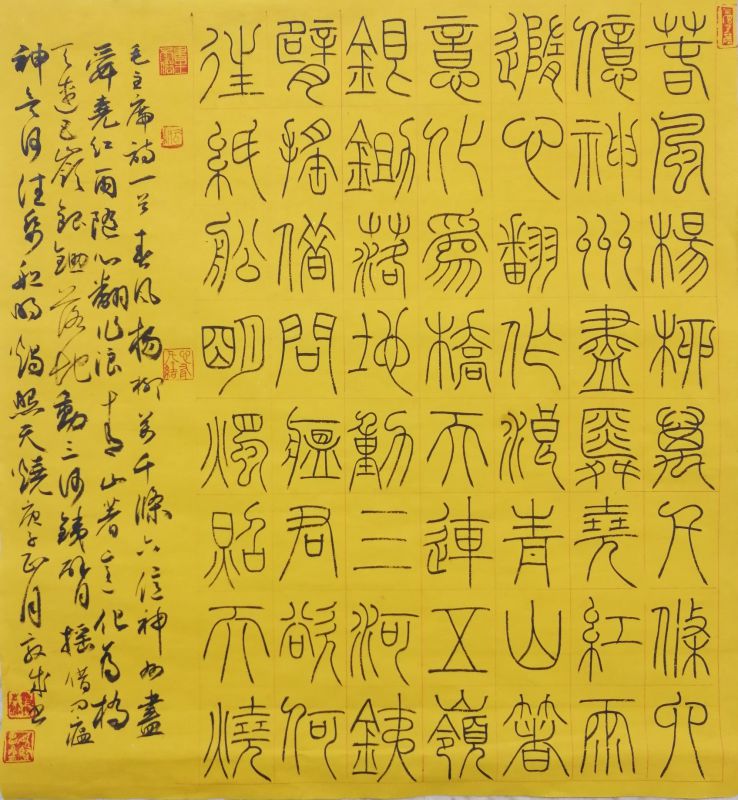 春風楊柳萬千條六
億神州盡舜堯紅雨
隨心翻作浪青山箸
意化爲橋天連五嶺
銀鋤落地動三河鐵
臂搖借問瘟君欲何
往紙船明燭照天燒
毛主席詩一首春风楊柳萬千條六億神州盡
舜堯红雨随心翻作浪青山著意化为橋
天連五嶺銀鋤落地動三河鐵臂搖借问瘟
君欲何往紙船明燭照天燒庚子正月